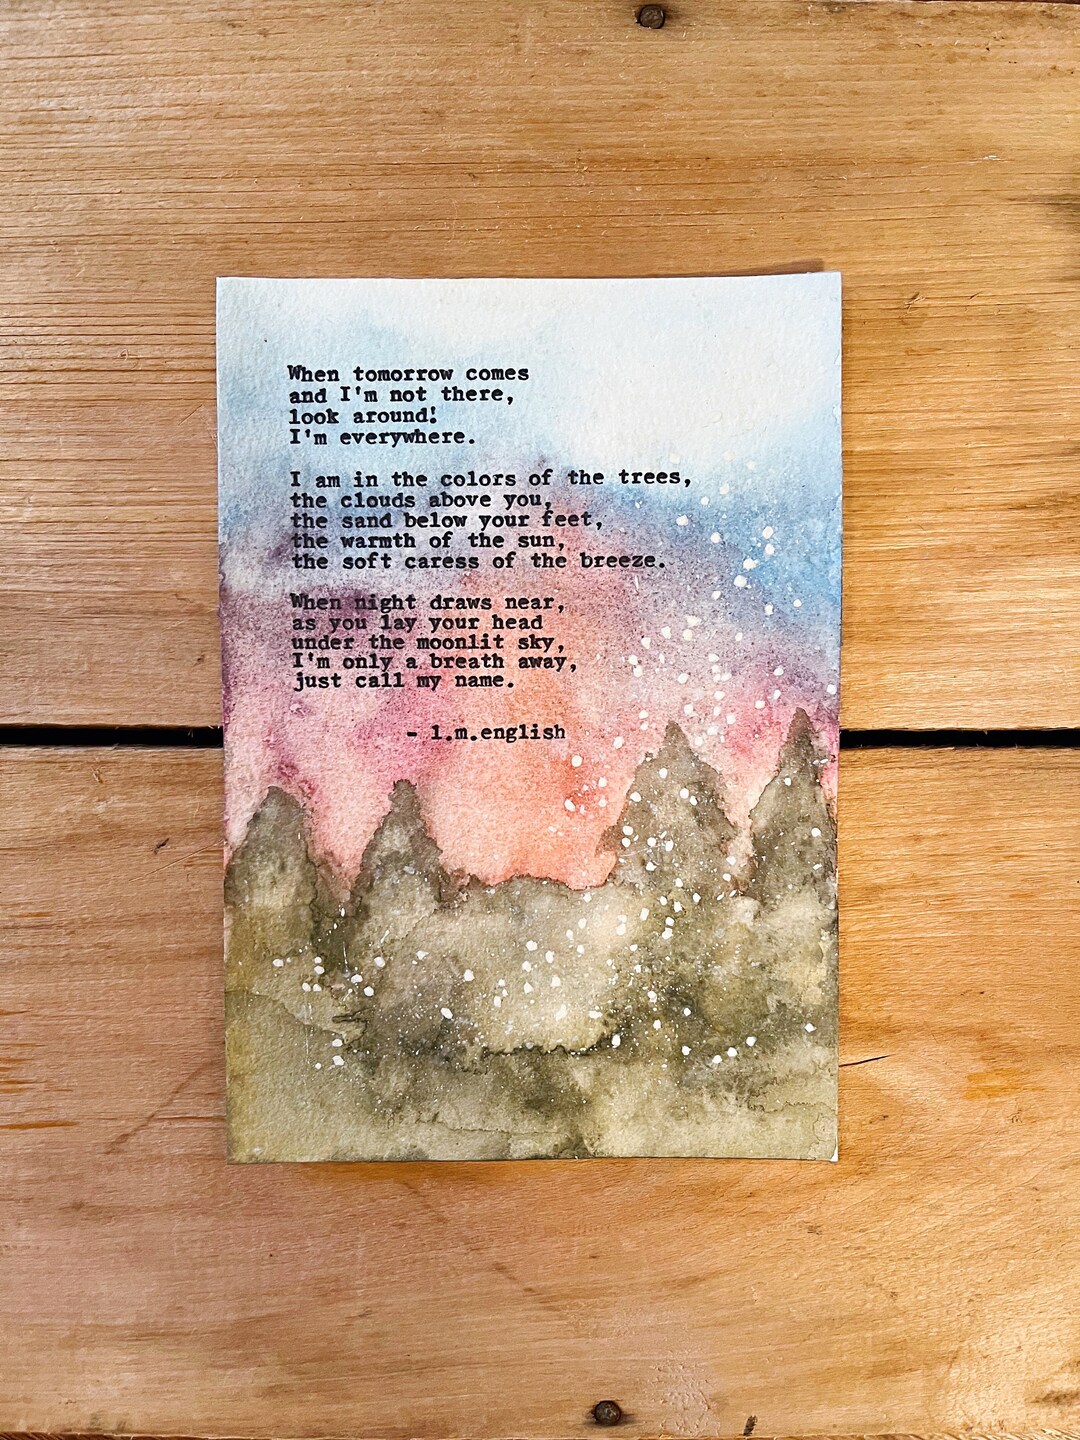 When tomorrow comes
and I'm not there,
look around!
I'm everywhere.
I am in the colors of the trees,
the clouds above you,
the sand below your feet,
the warmth of the sun,
the soft caress of the breeze.
When night draws near,
as you lay your head
under the moonlit sky,
I'm only a breath away,
just call my name.
- l.m.english